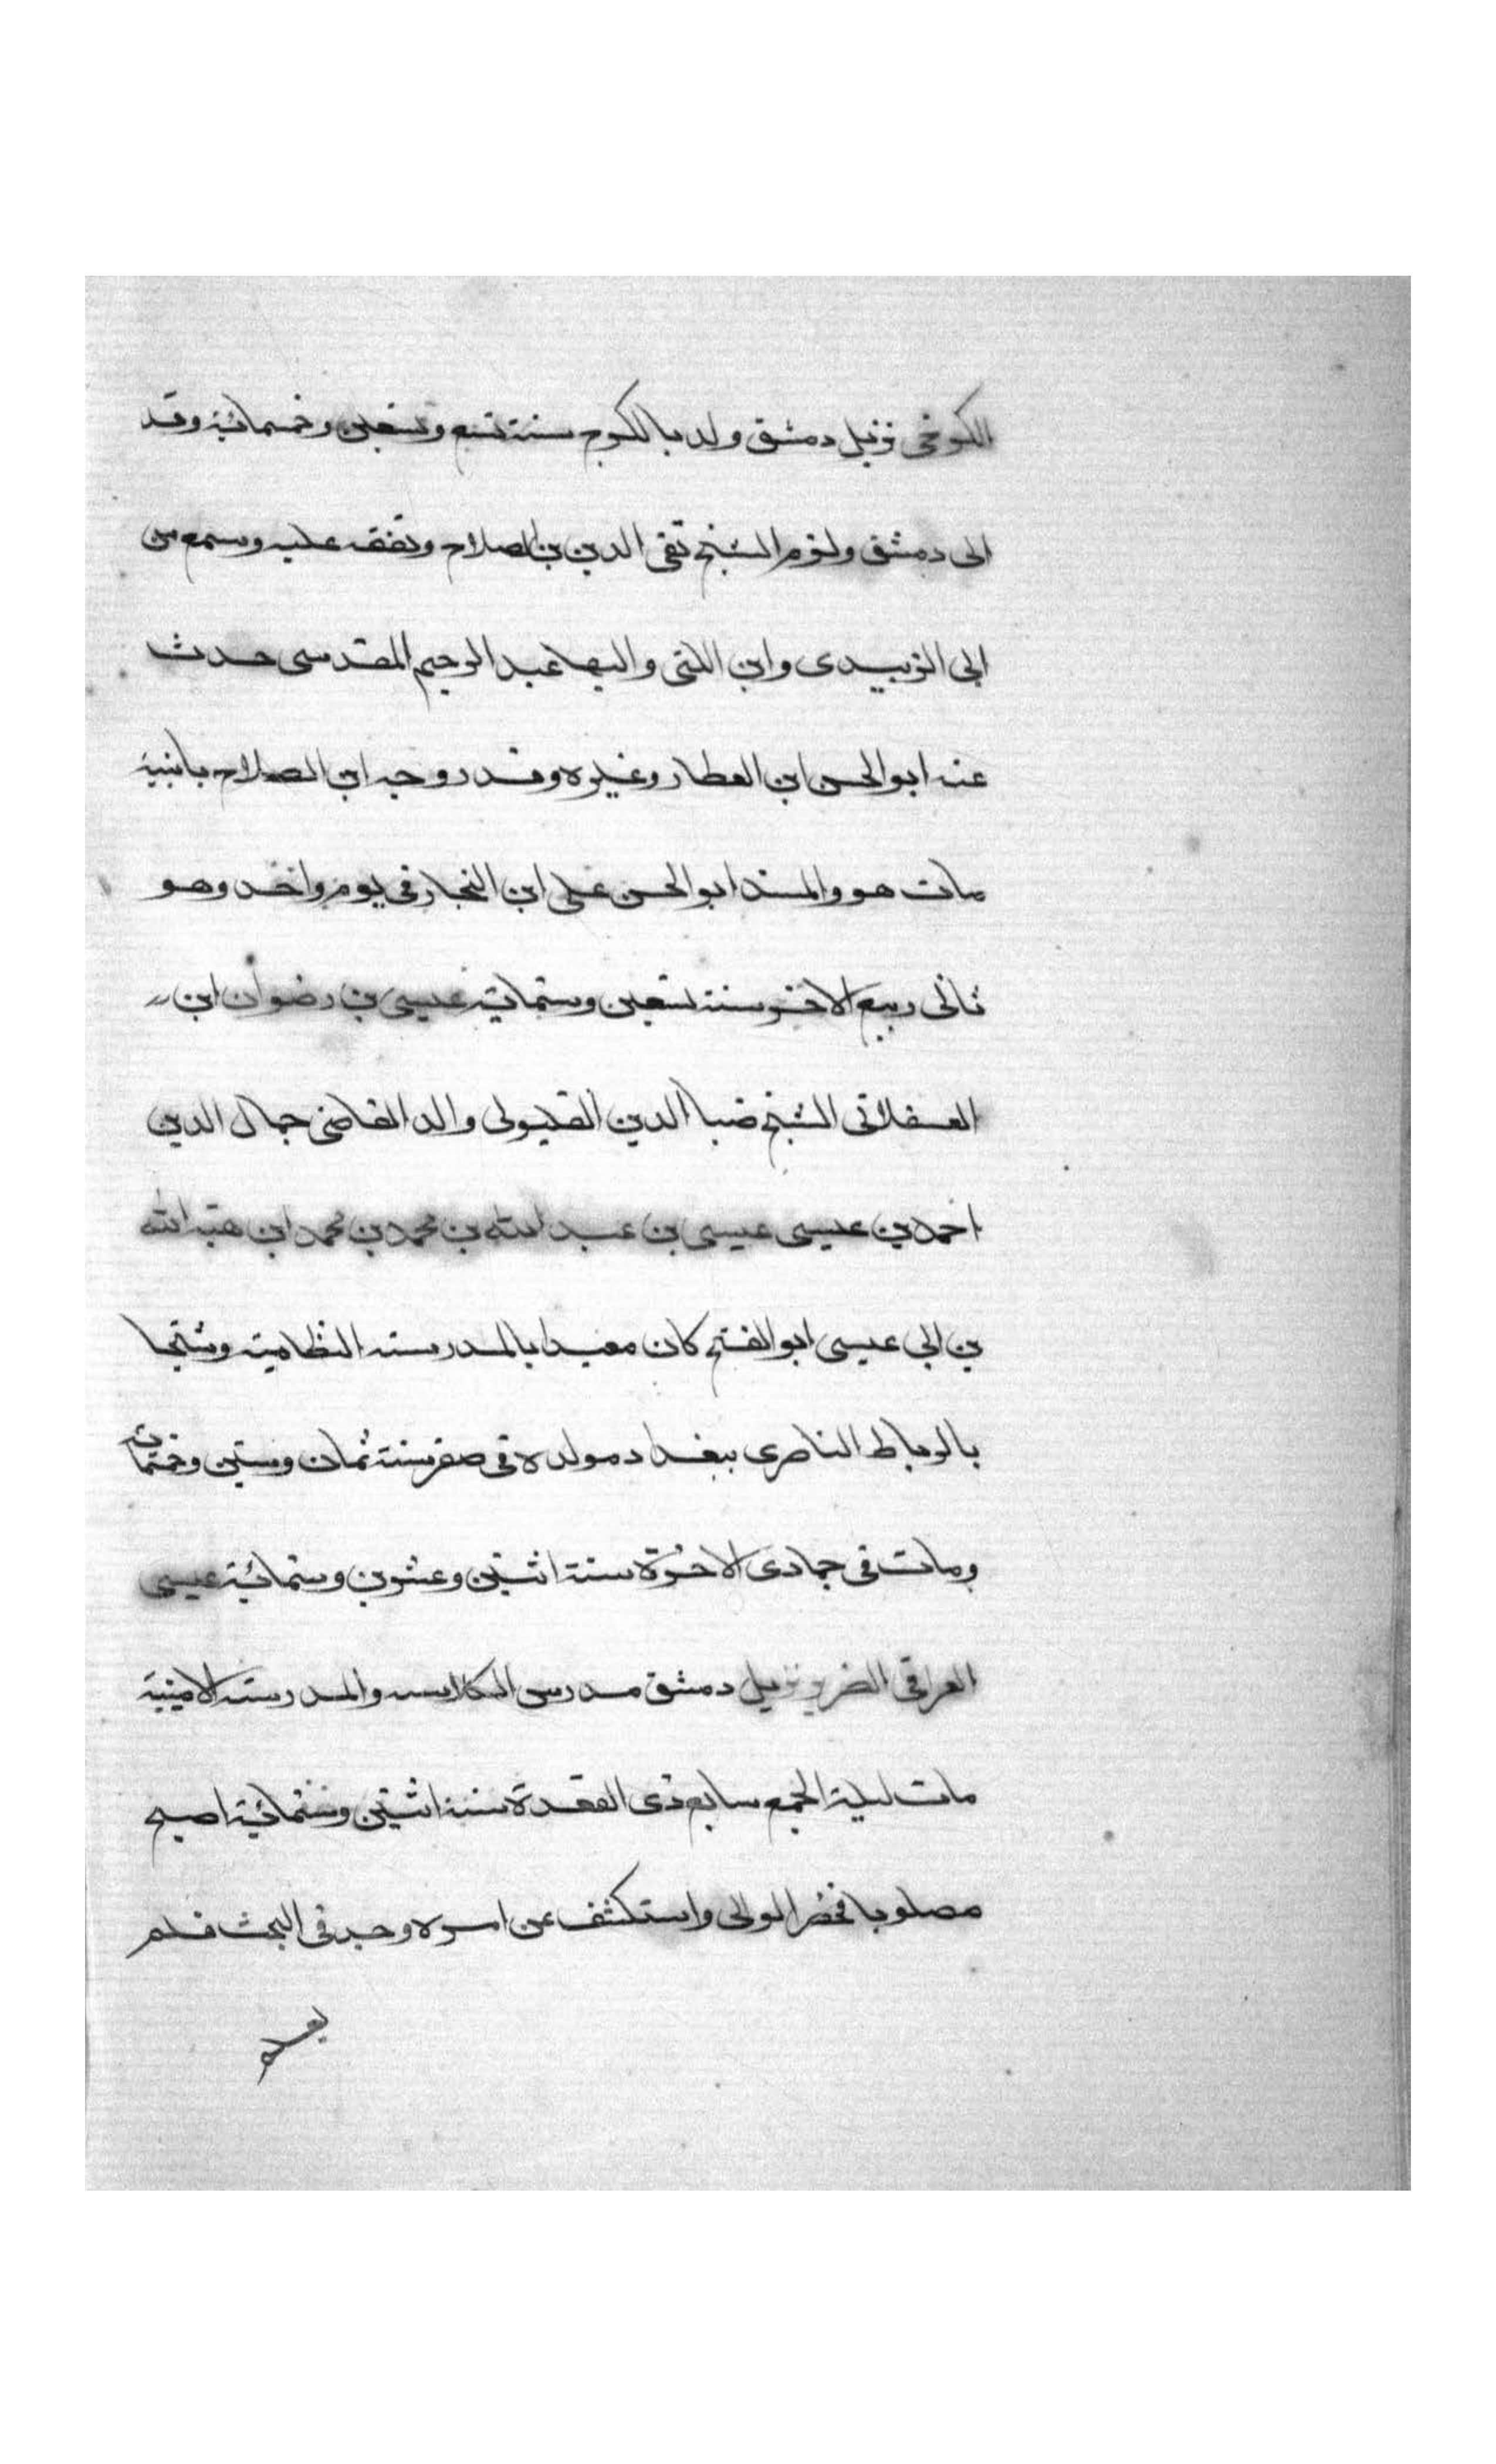 الكوخى نزيل دمشق ولد بالكوج سنة تسع وتسعين وخمسمائة وقد
الى دمشق ولزم الشيخ تقى الدين بن الصلاح وتفقه عليه وسمع من
ابى الزبيدى وابن اللتى والبها عبد الرحيم المقدسى حدث
عنه ابو الحسن ابن العطار وغيره وقد زوجه ابن الصلاح بابنية
مات هو والمسند ابو الحسن على ابن النجار فى يوم واحد وهو
ثانى ربيع الاخر سنة تسعين وستمائة عيسى بن رضوان ابن
العسقلانى الشيخ ضيا الدين القليوبى والد القاضى جمال الدين
احمد بن عيسى عيسى بن عبد الله بن محمد بن محمد ابن هبة الله
بن ابى عيسى ابو الفتح كان معيدا بالمدرسة النظامية وشيخا
بالرباط الناصرى ببغداد مولده فى صفر سنة ثمان وستين وخمسمائة
ومات فى جمادى الاخرة سنة اثنتين وعشرين وستمائة عيسى
العراقى الضرير نزيل دمشق مدرس الكلاسه والمدرسة الامينية
مات ليلة الجمع سابع ذى القعدة سنة اثنتين وستمائة اصبح
مصلوبا فحضر الوالى واستكشف عن امره وجد فى البحث فلم
يعلم